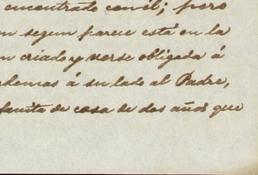 encontrado con él; pero
n segun parece está en la
n criado y verse obligada á
demas á su lado al Padre,
fanita de casa de dos años que